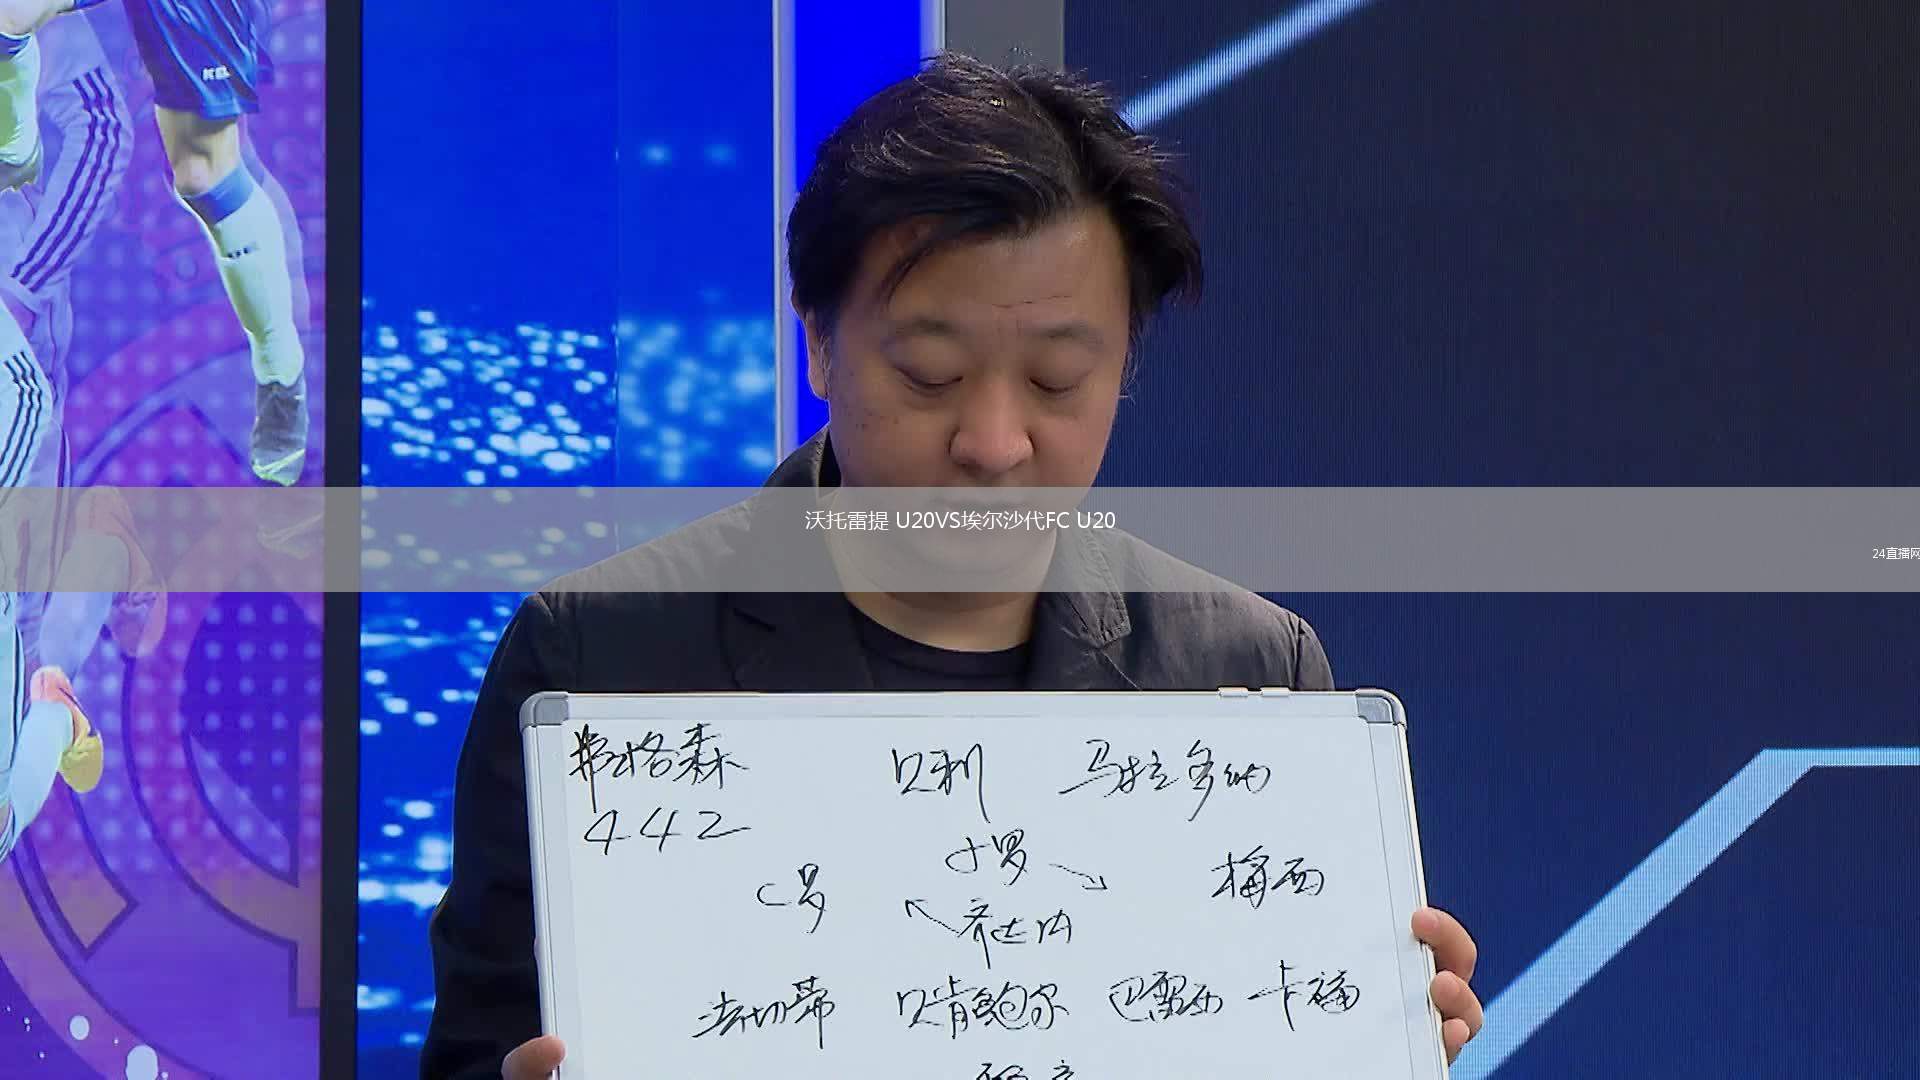 沃托雷提 U20VS埃尔沙代FC U20
24直播网
弗格森 贝利 马拉多纳
442
小罗
C罗 梅西
齐达内
法切蒂 贝肯鲍尔 巴雷西 卡福